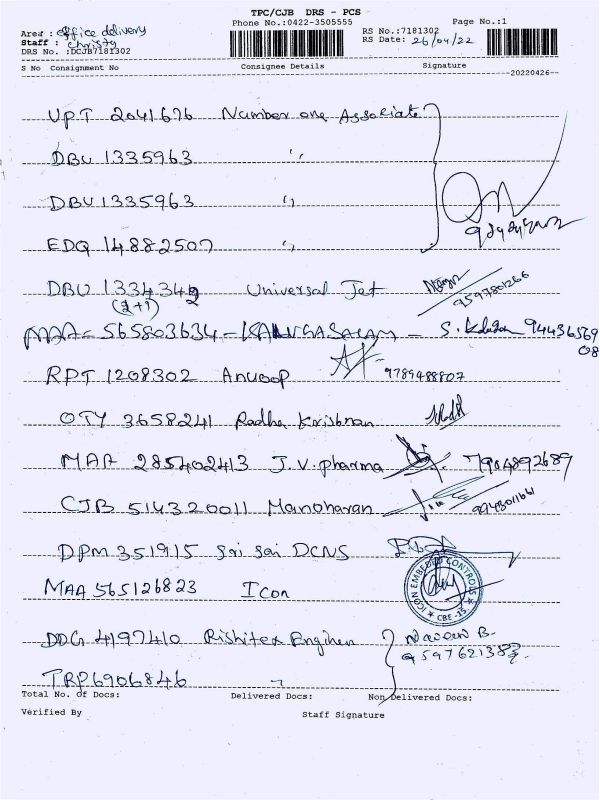 TPC/CJB DRS - PCS
Phone No.:0422-3505555
Page No.:1
Area : office delivery
RS No.:7181302
Staff : Christy
RS Date: 26/04/22
DRS No. :DCJB7181302
S No Consignment No Consignee Details Signature
--20220426--
UPT 2041676 Number one Associate
DBU 1335963 "
DBU 1335963 "
EDQ 14882507 "
DBU 1334342 Universal Jet 9597801266
(2+1)
MAA - 565803634 - 94436569
08
RPT 1208302 Anoop 9789488807
OTY 3658241 Radha Krishnan
MAA 285402413 J.V. pharma 7904892689
CJB 514320011 Manoharan
DPM 351915 Sri Sai DCNS
MAA 565126823 Icon
ICON EMBEDDED CONTROLS
CBE -15.
DDG 4197410 Rishitex Enginer Naveen B.
TRP6906846 "
Total No. Of Docs: Delivered Docs: Non Delivered Docs:
Verified By Staff Signature